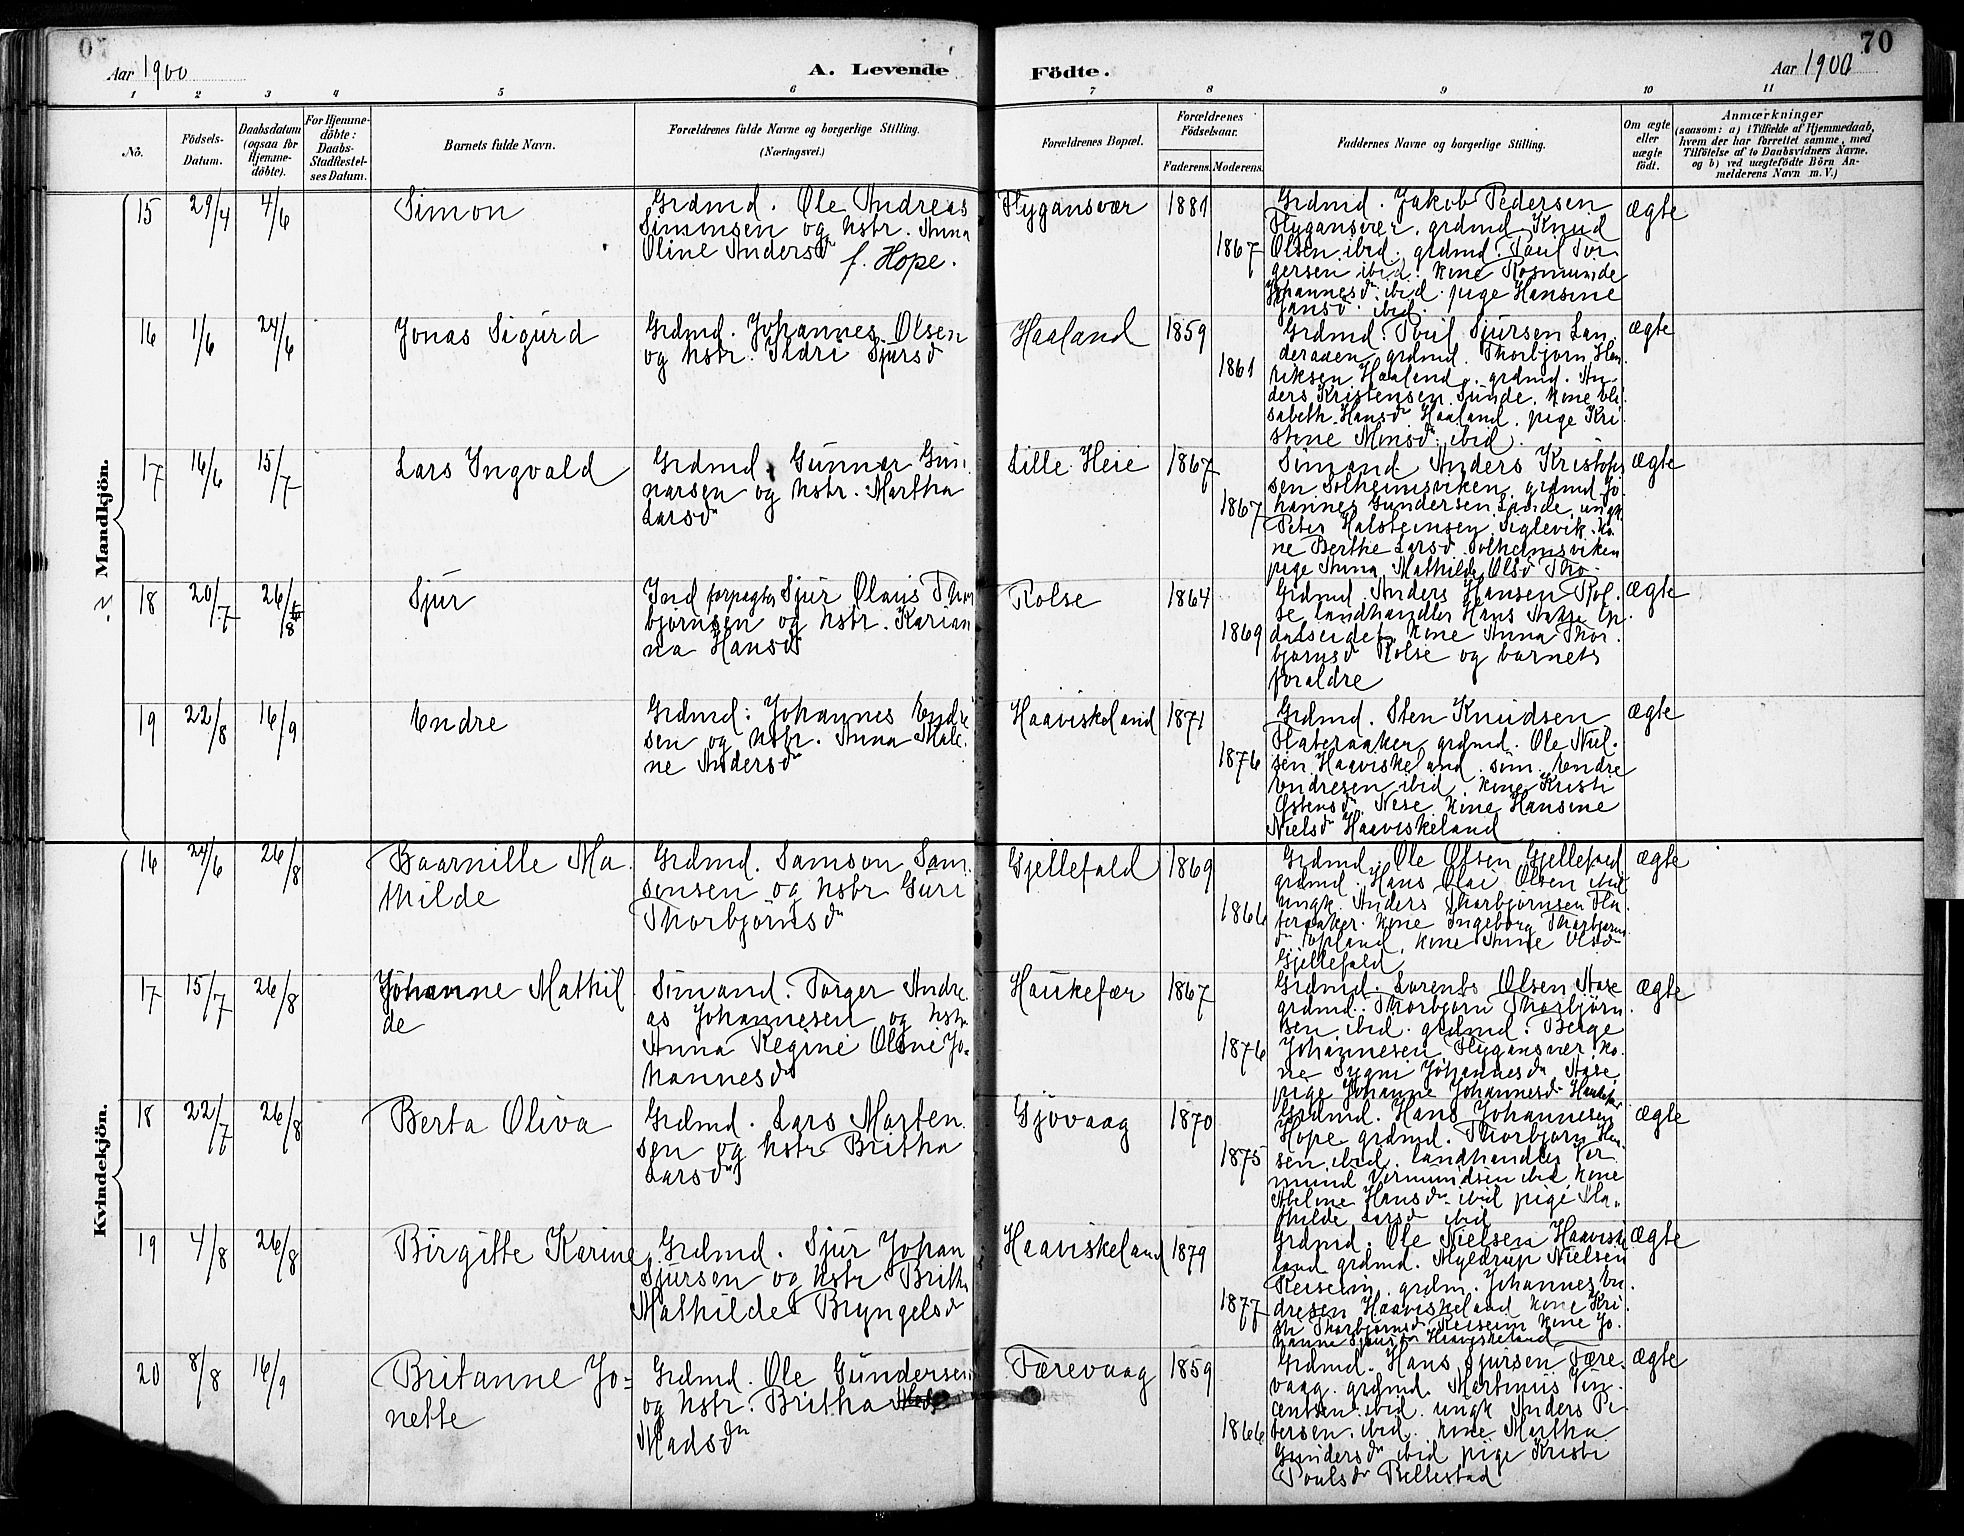 70
Aar 1900
A. Levende Födte.
Aar 1900
1 2 3 4 5 6 7 8 9 10 11
No.
Födsels-
Datum.
Daabsdatum
(ogsaa for
Hjemme-
döbte).
For Hjemme-
döbte:
Daabs-
Stadfæstel-
ses Datum.
Barnets fulde Navn.
Forældrenes fulde Navne og borgerlige Stilling.
(Næringsvei.)
Forældrenes Bopæl.
Forældrenes
Födselsaar.
Faderens. Moderens.
Faddernes Navne og borgerlige Stilling.
Om ægte
eller
uægte
födt.
Anmærkninger
(saasom: a) i Tilfælde af Hjemmedaab,
hvem der har forrettet samme, med
Tilföielse af to Daabsvidners Navne.
og b) ved uægtefödte Börn An-
melderens Navn m. V.)
Mandkjön.
15 29/4 4/6 Simon
Grdmd. Ole Andreas
Simonsen og hstr. Anna
Oline Andersdr
f. Hope.
Flygansvær 1881 1867
Grdmd. Jakob Pedersen
Flygansvær, grdmd Knud
Olsen ibid, grdmd. Poul Tor-
gersen ibid. kone Rosmunde
Johannesdr ibid. pige Hansine
Jansdr ibid.
ægte
16 1/6 24/6 Jonas Sigurd
Grdmd. Johannes Olsen
og hstr. Sidri Sjursd
Haaland 1859 1861
Grdmd. Poul Sjursen Lan-
deraaen grdmd. Thorbjørn Hen-
riksen Haaland, grdmd. An-
ders Kristensen Sunde, kone Eli-
sabeth Hansdr Haaland, pige Kri-
stine Monsdr ibid.
ægte
17 16/6 15/7 Lars Ingvald
Grdmd. Gunnar Gun-
narsen og hstr. Martha
Larsdr
Lille Heie 1867 1867
Sømand Anders Kristofer-
sen Solheimsviken, grdmd Jo-
hannes Gundersen Sunde, ungk.
Peter Halsteinsen Siglevik, ko-
ne Berthe Larsd Solheimsviken
pige Anna Mathilde Olsd Tho-
ægte
18 20/7 26/8 Sjur
Ind forpagter Sjur Olaus Thor
bjørnsen og hstr. Karian
na Hansdr
Rolse 1864 1869
Grdmd. Anders Hansen Rol-
se landhandler Hans Aakre Op-
dalseidet, kone Anna Thor-
bjørnsd Rolse og barnets
foraldre
ægte
19 22/8 16/9 Endre
Grdmd. Johannes Endre
sen og hstr. Anna Male-
ne Andersdr
Haaviskeland 1871 1876
Grdmd. Sten Knudsen
Flateraaker, grdmd. Ole Niel-
sen Haaviskeland, søm. Endre
Endresen ibid. kone Kristi
Østensdr Nese, kone Hansine
Nielsdr Haaviskeland
ægte
Kvindekjön.
16 24/6 26/8 Baarnille Ma-
thilde
Grdmd. Samson Sam-
sonsen og hstr Guri
Thorbjørnsdr
Gjellefald 1869 1866
Grdmd. Ole Olsen Gjellefald
grdmd. Hans Olai Olsen ibid
ungk. Anders Thorbjørnsen Fla-
teraaker. kone Ingeborg Thorbjørns-
dr Opland, kone Anne Olsdr
Gjellefald
ægte
17 15/7 26/8 Johanne Mathil
de
Sömand. Torger Andre-
as Johannesen og hstr
Anna Regine Olsine Jo-
hannesdr
Haukefær 1867 1876
Grdmd. Lorents Olsen Aase
grdmd. Thorbjørn Thorbjørn-
sen ibid. grdmd. Berge
Johannesen Flygansvær, ko-
ne Sygni Johannesdr Aase
pige Johanne Johannesdr Haukefær
ægte
18 22/7 26/8 Berta Oliva
Grdmd. Lars Marten-
sen og hstr Britha
Larsdr
Gjövaag 1870 1875
Grdmd. Hans Johannesen
Hope grdmd. Thorbjørn Han-
sen ibid. landhandler Ver-
mund Vermundsen ibid, kone
Abeline Hansdr ibid pige Ma-
thilde Larsd ibid
ægte
19 4/8 26/8 Birgitte Karine
Grdmd. Sjur Johan
Sjursen og hstr Britha
Mathilde Bryngelsdr
Haaviskeland 1879 1877
Grdmd. Ole Nielsen Haaviske-
land grdmd. Myldrup Nielsen
Reiseim, grdm. Johannes En-
dresen Haaviskeland kone Kri-
sti Thorbjørnsd Reiseim kone Jo-
hanne Haaviskeland
ægte
20 8/8 16/9 Britanne Jo-
nette
Grdmd. Ole Gundersen
og hstr. Britha
Madsdr
Færevaag 1859 1866
Grdmd. Hans Sjursen Fære-
vaag. grdmd. Martinus Vin-
centsen ibid. ungk Anders Pe-
tersen ibid. kone Martha
Gundersdr ibid pige Kristi
Poulsdr Rellestad
ægte